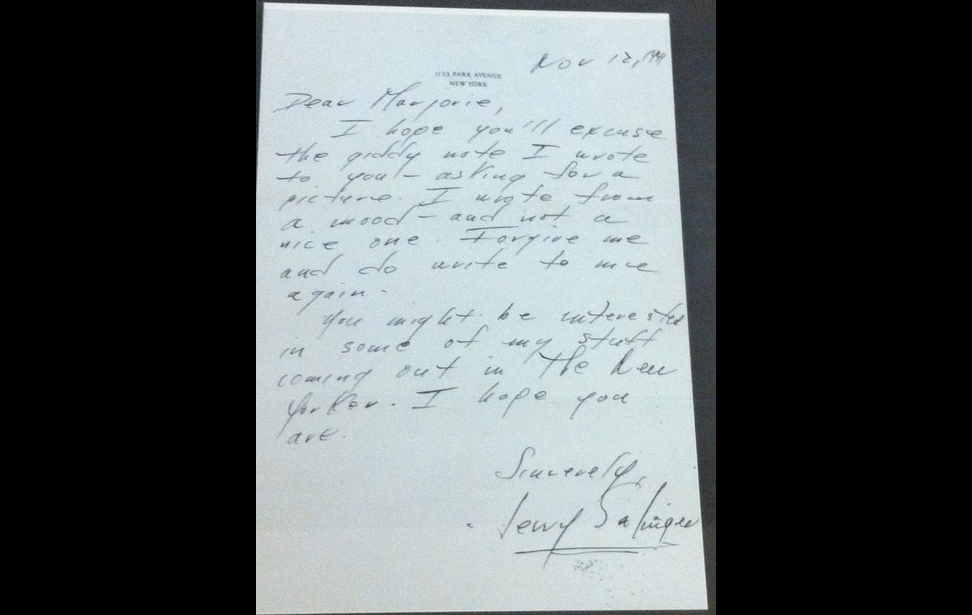 Nov 12,
1133 PARK AVENUE
NEW YORK
Dear Marjorie,
I hope you'll excuse
the giddy note I wrote
to you - asking for a
picture. I wrote from
a mood - and not a
nice one. Forgive me
and do write to me
again.
You might be interested
in some of my stuff
coming out in The New
Yorker. I hope you
are.
Sincerely,
Jerry Salinger